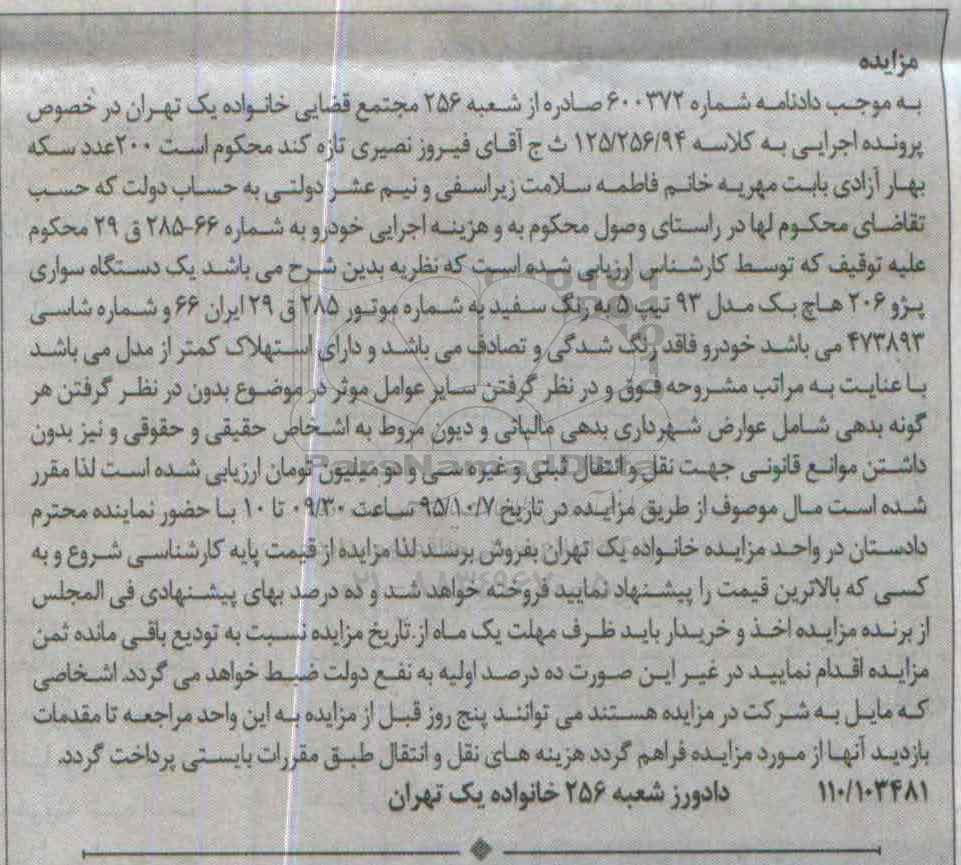 مزایده
به موجب دادنامه شماره ۶۰۰۳۷۲ صادره از شعبه ۲۵۶ مجتمع قضایی خانواده یک تهران در خصوص
پرونده اجرایی به کلاسه ۱۲۵/۲۵۶/۹۴ ث ج آقای فیروز نصیری تازه کند محکوم است ۲۰۰عدد سکه
بهار آزادی بابت مهریه خانم فاطمه سلامت زیراسفی و نیم عشر دولتی به حساب دولت که حسب
تقاضای محکوم لها در راستای وصول محکوم به و هزینه اجرایی خودرو به شماره ۶۶-۲۸۵ ق ۲۹ محکوم
علیه توقیف که توسط کارشناس ارزیابی شده است که نظریه بدین شرح می باشد یک دستگاه سواری
پژو ۲۰۶ هاچ بک مدل ۹۳ تیپ ۵ به رنگ سفید به شماره موتور ۲۸۵ ق ۲۹ ایران ۶۶ و شماره شاسی
۴۷۳۸۹۳ می باشد خودرو فاقد رنگ شدگی و تصادف می باشد و دارای استهلاک کمتر از مدل می باشد
با عنایت به مراتب مشروحه فوق و در نظر گرفتن سایر عوامل موثر در موضوع بدون در نظر گرفتن هر
گونه بدهی شامل عوارض شهرداری بدهی مالیاتی و دیون مروط به اشخاص حقیقی و حقوقی و نیز بدون
داشتن موانع قانونی جهت نقل و انتقال ثبتی و غیره سی و دو میلیون تومان ارزیابی شده است لذا مقرر
شده است مال موصوف از طریق مزایده در تاریخ ۹۵/۱۰/۷ ساعت ۰۹/۳۰ تا ۱۰ با حضور نماینده محترم
دادستان در واحد مزایده خانواده یک تهران بفروش برسد لذا مزایده از قیمت پایه کارشناسی شروع و به
کسی که بالاترین قیمت را پیشنهاد نمایید فروخته خواهد شد و ده درصد بهای پیشنهادی فی المجلس
از برنده مزایده اخذ و خریدار باید ظرف مهلت یک ماه از تاریخ مزایده نسبت به تودیع باقی مانده ثمن
مزایده اقدام نمایید در غیر این صورت ده درصد اولیه به نفع دولت ضبط خواهد می گردد. اشخاصی
که مایل به شرکت در مزایده هستند می توانند پنج روز قبل از مزایده به این واحد مراجعه تا مقدمات
بازدید آنها از مورد مزایده فراهم گردد هزینه های نقل و انتقال طبق مقررات بایستی پرداخت گردد.
۱۱۰/۱۰۳۴۸۱ دادورز شعبه ۲۵۶ خانواده یک تهران